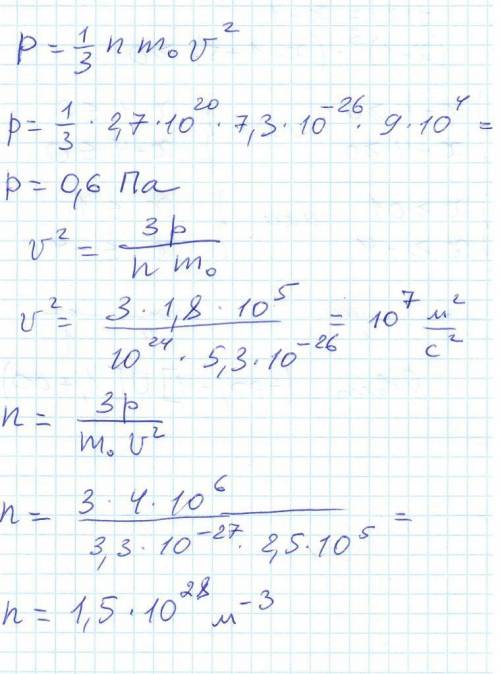 p = 1/3 n m₀ v²
p = 1/3 · 2,7 · 10²⁰ · 7,3 · 10⁻²⁶ · 9 · 10⁴ =
p = 0,6 Па
v² = 3p / n m₀
v² = 3 · 1,8 · 10⁵ / 10²⁴ · 5,3 · 10⁻²⁶ = 10⁷ м²/с²
n = 3p / m₀ v²
n = 3 · 4 · 10⁶ / 3,3 · 10⁻²⁷ · 2,5 · 10⁵ =
n = 1,5 · 10²⁸ м⁻³